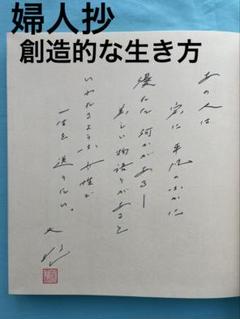 婦人抄
創造的な生き方
あの人は
実に 平凡のなかに
優れた 何かがある—
美しい物語りがあると
いわれるような
一生を 送りたい。